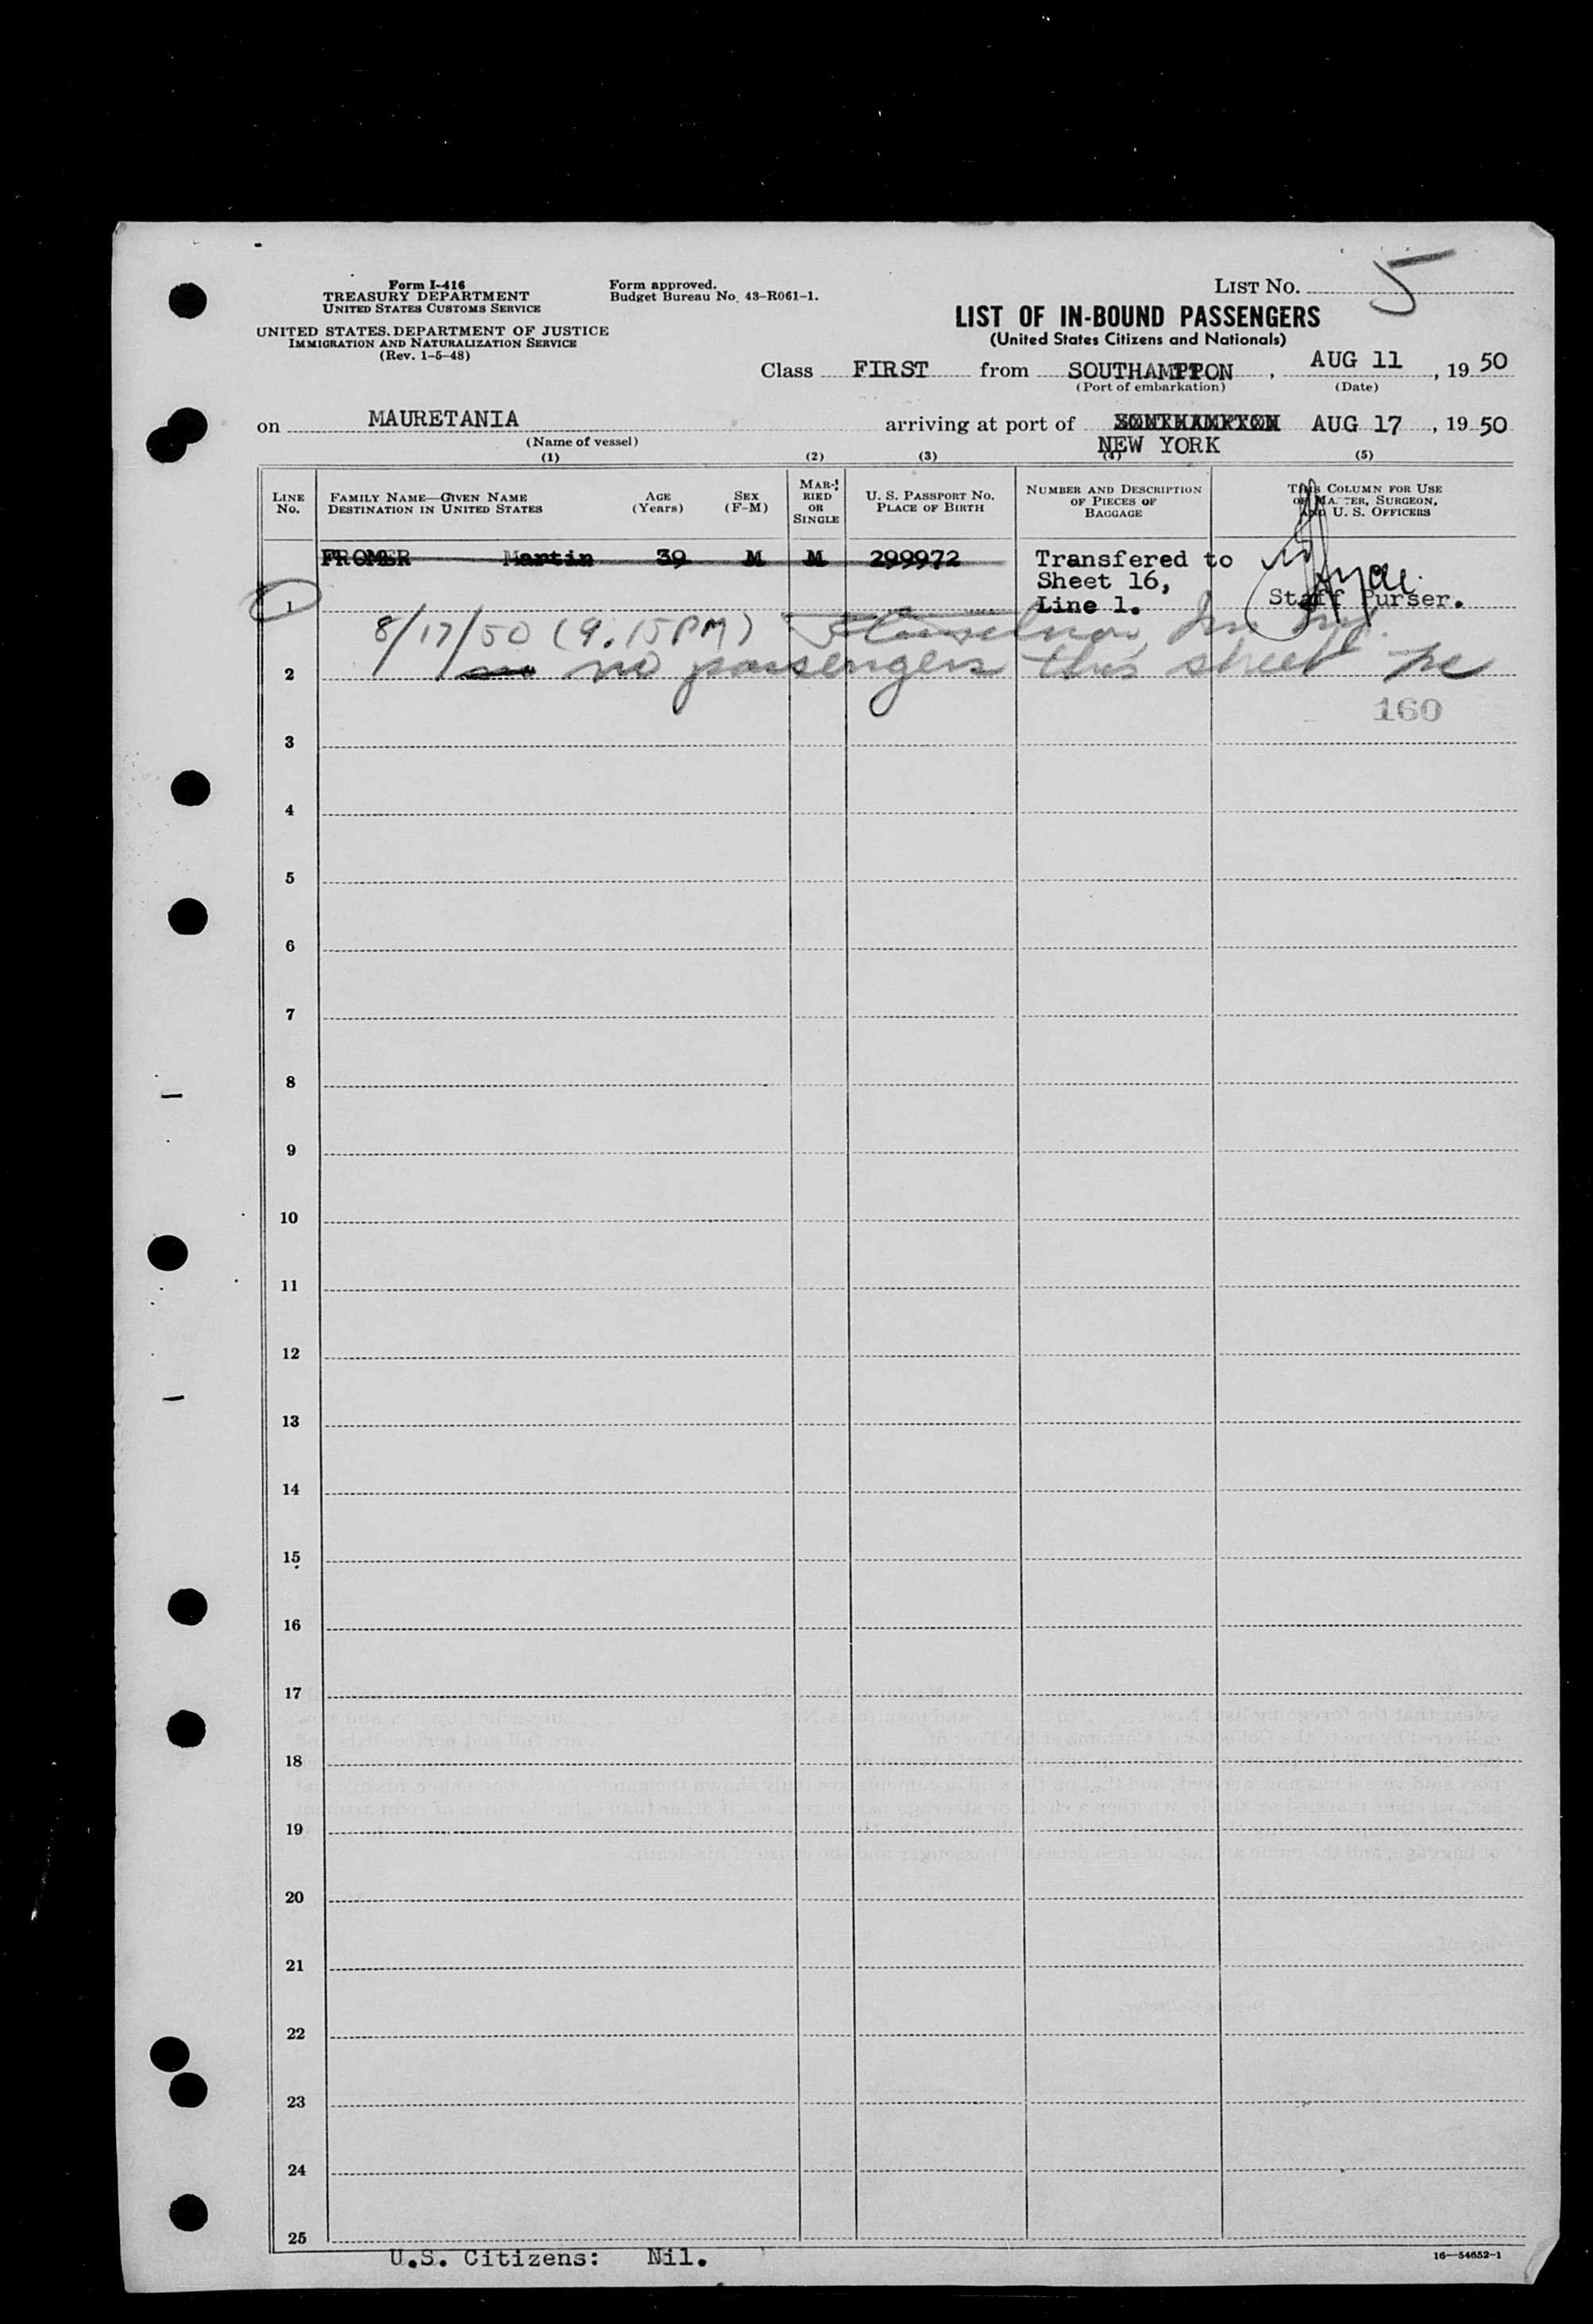 Form I-416
TREASURY DEPARTMENT
UNITED STATES CUSTOMS SERVICE
UNITED STATES DEPARTMENT OF JUSTICE
IMMIGRATION AND NATURALIZATION SERVICE
(Rev. 1-5-48)
Form approved.
Budget Bureau No. 43-R061-1.
LIST NO. 5
LIST OF IN-BOUND PASSENGERS
(United States Citizens and Nationals)
Class FIRST from SOUTHAMPTON, AUG 11, 19 50
(Port of embarkation) (Date)
on MAURETANIA arriving at port of SOUTHAMPTON AUG 17, 19 50
(Name of vessel) NEW YORK
(1) (2) (3) (4) (5)
LINE No.
FAMILY NAME—GIVEN NAME
DESTINATION IN UNITED STATES
AGE (Years)
SEX (F-M)
MARRIED OR SINGLE
U. S. PASSPORT NO.
PLACE OF BIRTH
NUMBER AND DESCRIPTION OF PIECES OF BAGGAGE
THIS COLUMN FOR USE OF MASTER, SURGEON, AND U. S. OFFICERS
FROMER Martin 39 M M 299972 Transfered to
Sheet 16,
1 Line 1. Staff Purser.
8/17/50 (9:15 PM)
2 no passengers this sheet
160
3
4
5
6
7
8
9
10
11
12
13
14
15
16
17
18
19
20
21
22
23
24
25
U.S. Citizens: Nil.
16—54652-1